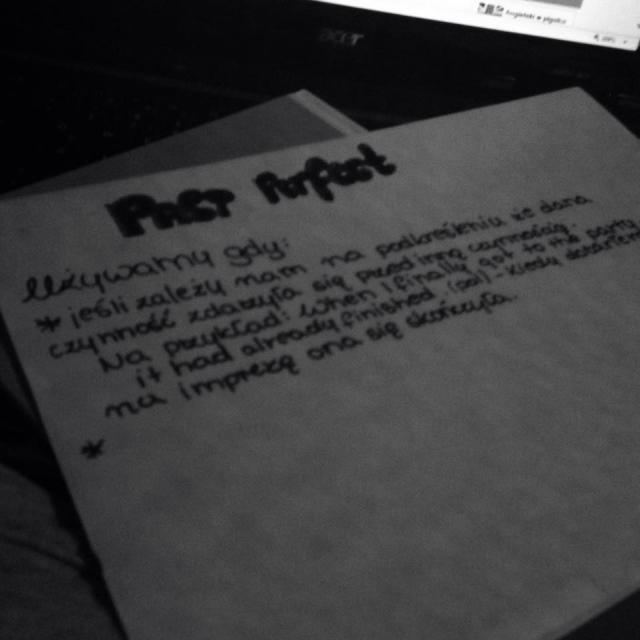 acer
PAST Perfect
Używamy gdy:
* jeśli zależy nam na podkreśleniu że dana
czynność zdarzyła się przed inną czynnością.
Na przykład: When I finally got to the party
it had already finished - Kiedy dotarłem
na imprezę ona się skończyła.
*